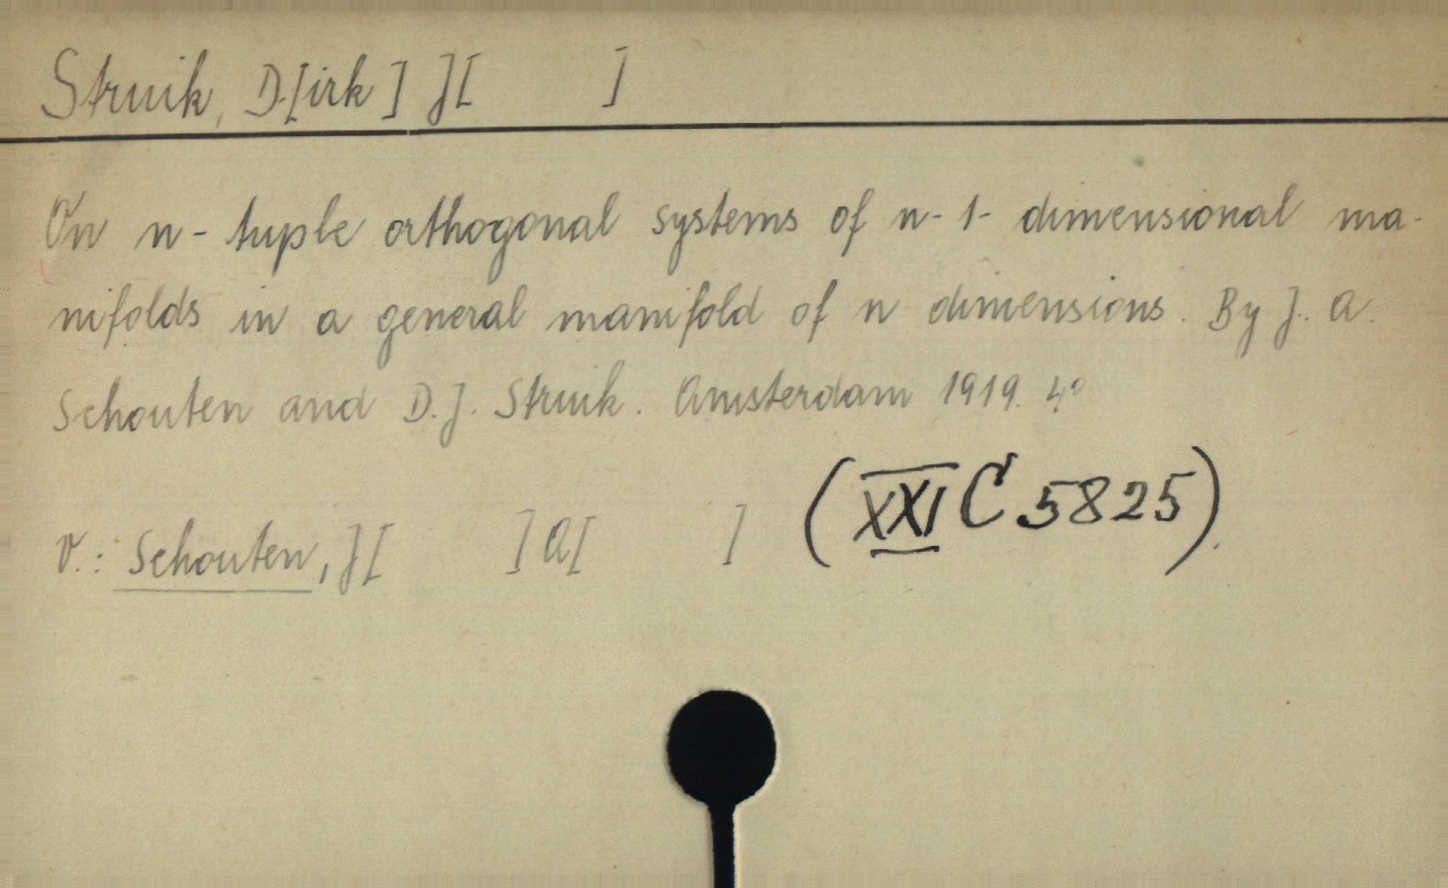 Struik, D.[irk] J[ ]
On n-tuple orthogonal systems of n-1-dimensional ma-
nifolds in a general manifold of n dimensions. By J. A.
Schouten and D. J. Struik. Amsterdam 1919. 4°
(XXI C 5825).
V.: Schouten, J[ ] A[ ]